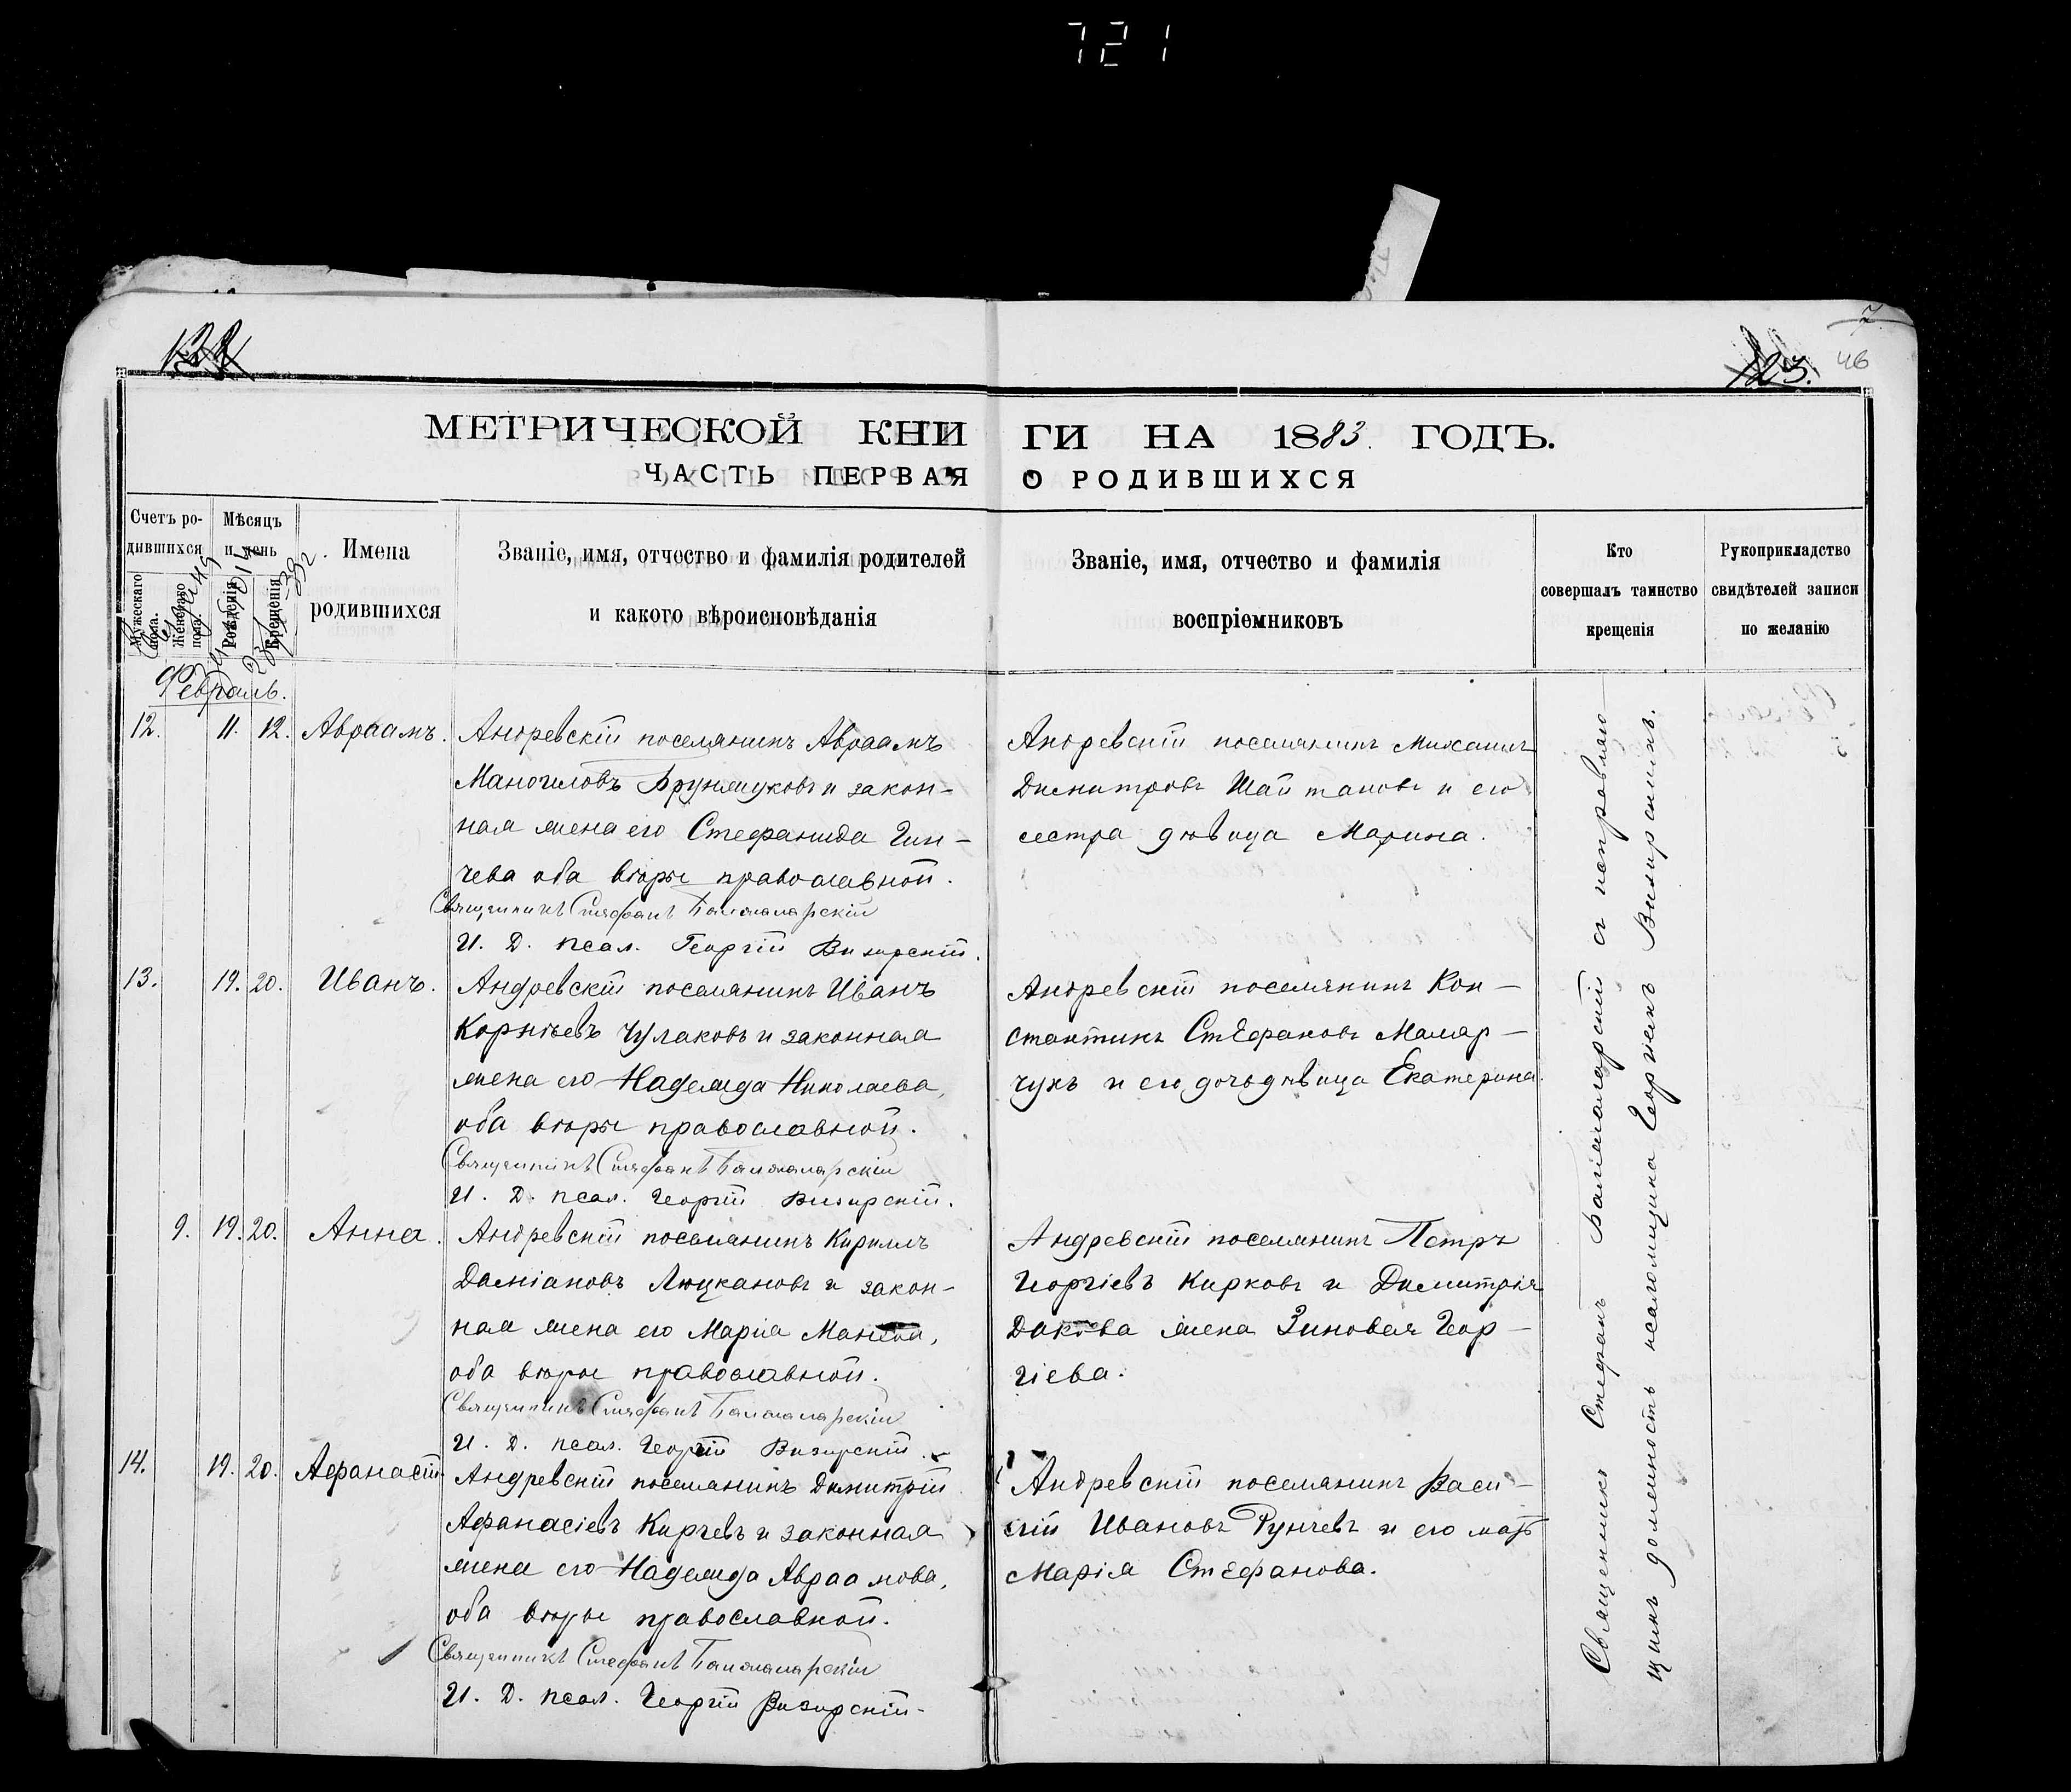 721
7
46
123.
МЕТРИЧЕСКОЙ КНИ ГИ НА 1883. ГОДЪ.
ЧАСТЬ ПЕРВАЯ О РОДИВШИХСЯ
Счетъ ро-
дившихся
Мужескаго пола.
Женскаго пола.
Мѣсяцъ
и день
Рожденія
Крещенія
Имена
родившихся
Званіе, имя, отчество и фамилія родителей
и какого вѣроисповѣданія
Званіе, имя, отчество и фамилія
воспріемниковъ
Кто
совершалъ таинство
крещенія
Рукоприкладство
свидѣтелей записи
по желанію
Февраль.
12. 11. 12. Авраамъ.
Андревскій поселянинъ Авраамъ
Маноиловъ Брунжуковъ и закон-
ная жена его Стефанида Ган-
чева оба вѣры православной.
Священникъ Стефанъ Балжаларскій
И. Д. псал. Георгій Визирскій.
Андревскій поселянинъ Михаилъ
Димитровъ Шайтановъ и его
сестра дѣвица Марина.
13. 19. 20. Иванъ.
Андревскій поселянинъ Иванъ
Корнѣевъ Чулаковъ и законная
жена его Надежда Николаева,
оба вѣры православной.
Священникъ Стефанъ Балжаларскій
И. Д. псал. Георгій Визирскій.
Андревскій поселянинъ Кон-
стантинъ Стефановъ Маляр-
чукъ и его дочь дѣвица Екатерина.
9. 19. 20. Анна.
Андревскій поселянинъ Кириллъ
Даміановъ Люцкановъ и закон-
ная жена его Марія
оба вѣры православной.
Священникъ Стефанъ Балжаларскій
И. Д. псал. Георгій Визирскій.
Андревскій поселянинъ Петръ
Георгіевъ Кирковъ и Димитрія
Дакова жена Зиновея Геор-
гіева.
14. 19. 20. Афанасій
Андревскій поселянинъ Димитрій
Афанасіевъ Кирчевъ и законная
жена его Надежда Авраамова,
оба вѣры православной.
Священникъ Стефанъ Балжаларскій
И. Д. псал. Георгій Визирскій.
Андревскій поселянинъ Васи-
лій Ивановъ Рунчевъ и его мать
Марія Стефанова.
Священникъ Стефанъ Балжаларскій съ исправляю-
щимъ должность псаломщика Георгіемъ Визирскимъ.